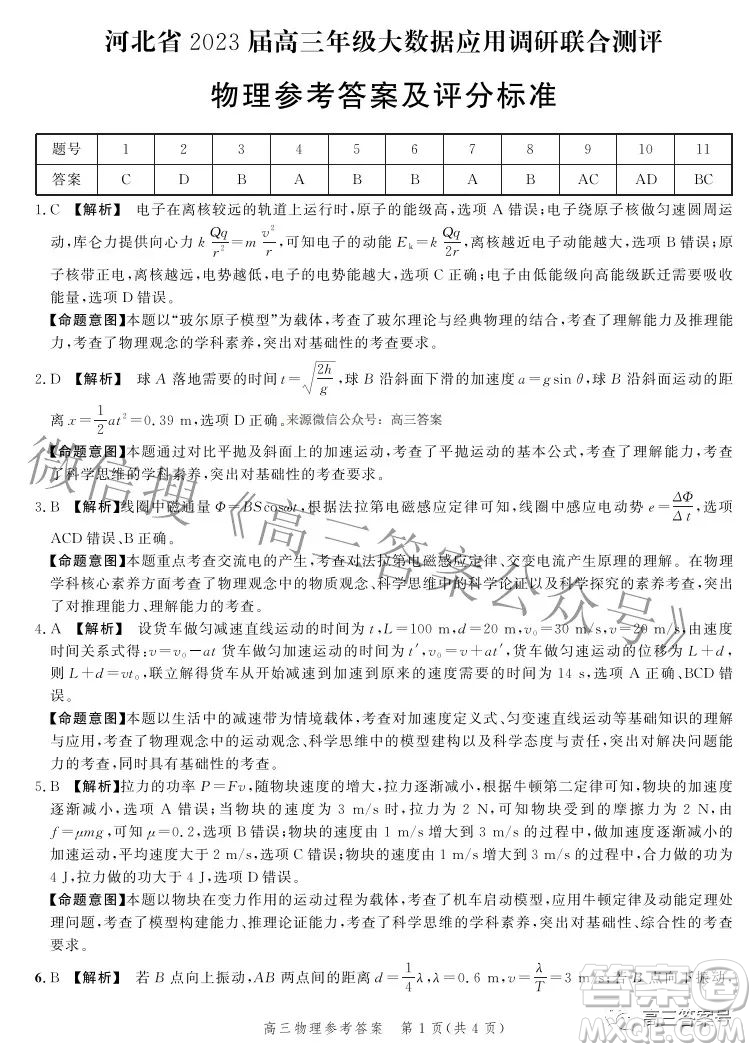 河北省 2023 届高三年级大数据应用调研联合测评
物理参考答案及评分标准
题号 1 2 3 4 5 6 7 8 9 10 11
答案 C D B A B B A B AC AD BC
1. C 【解析】 电子在离核较远的轨道上运行时,原子的能级高,选项 A 错误;电子绕原子核做匀速圆周运
动,库仑力提供向心力 k Qq/r²=m v²/r,可知电子的动能 Ek=k Qq/2r,离核越近电子动能越大,选项 B 错误;原
子核带正电,离核越远,电势越低,电子的电势能越大,选项 C 正确;电子由低能级向高能级跃迁需要吸收
能量,选项 D 错误。
【命题意图】本题以“玻尔原子模型”为载体,考查了玻尔理论与经典物理的结合,考查了理解能力及
推理能力,考查了物理观念的学科素养,突出对基础性的考查要求。
2. D 【解析】 球 A 落地需要的时间 t=√(2h/g),球 B 沿斜面下滑的加速度 a=gsin θ,球 B 沿斜面运动的距
离 x=1/2 at²=0.39 m,选项 D 正确。来源微信公众号:高三答案
【命题意图】本题通过对比平抛及斜面上的加速运动,考查了平抛运动的基本公式,考查了推理能力,考查
了科学思维的学科素养,突出对基础性的考查要求。
3. B 【解析】线圈中磁通量 Φ=BScosωt,根据法拉第电磁感应定律可知,线圈中感应电动势 e=ΔΦ/Δt,选项
ACD 错误、B 正确。
【命题意图】本题重点考查交流电的产生,考查对法拉第电磁感应定律、交变电流产生原理的理解。在物理
学科核心素养方面考查了物理观念中的物质观念、科学思维中的科学论证以及科学探究的素养考查,突出了
对推理能力、理解能力的考查。
4. A 【解析】 设货车做匀减速直线运动的时间为 t,L=100 m,d=20 m,v₀=30 m/s,v=20 m/s,由速度
时间关系式得:v=v₀−at 货车做匀加速运动的时间为 t′,v₀=v+at′,货车做匀速运动的位移为 L+d,
则 L+d=vt₀,联立解得货车从开始减速到加速到原来的速度需要的时间为 14 s,选项 A 正确、BCD 错
误。
【命题意图】本题以生活中的减速带为情境载体,考查了对加速度定义、匀变速直线运动等基础知识的理解与
应用,考查了物理观念中的运动观念、科学思维中的模型建构以及科学态度与责任,突出对文字理解能力的考
查,同时具有基础性考查要求。
5. B 【解析】拉力的功率 P=Fv,随物块速度的增大,拉力在减小,根据牛顿第二定律可知,物块的加速度逐
渐减小,选项 A 错误;当物块的速度为 3 m/s 时,拉力大小为 2 N,可知物块受到的摩擦力为 2 N,由
f=μmg,可知 μ=0.2,选项 B 正确;物块的速度由 1 m/s 增大到 3 m/s 的过程中,做加速度减小的
加速运动,平均速度大于 2 m/s,选项 C 错误;物块的速度由 1 m/s 增大到 3 m/s 的过程中,合力的功为
4 J,拉力的功大于 4 J,选项 D 错误。
【命题意图】本题以物块在变力作用的运动过程为载体,考查了机车启动模型,应用牛顿定律及动能定理处
理问题,考查了模型构建能力、推理能力,考查了科学思维的学科素养,突出对基础性、综合性的考查要求。
6. B 【解析】 若 B 点向上振动,AB 两点间的距离 d=1/4 λ,λ=0.6 m,v=λ/T=3 m/s;若 B 点向下振动,
高三物理参考答案 第 1 页(共 4 页)
微信搜《高三答案公众号》
高三答案号
答案圈
MXQE.COM